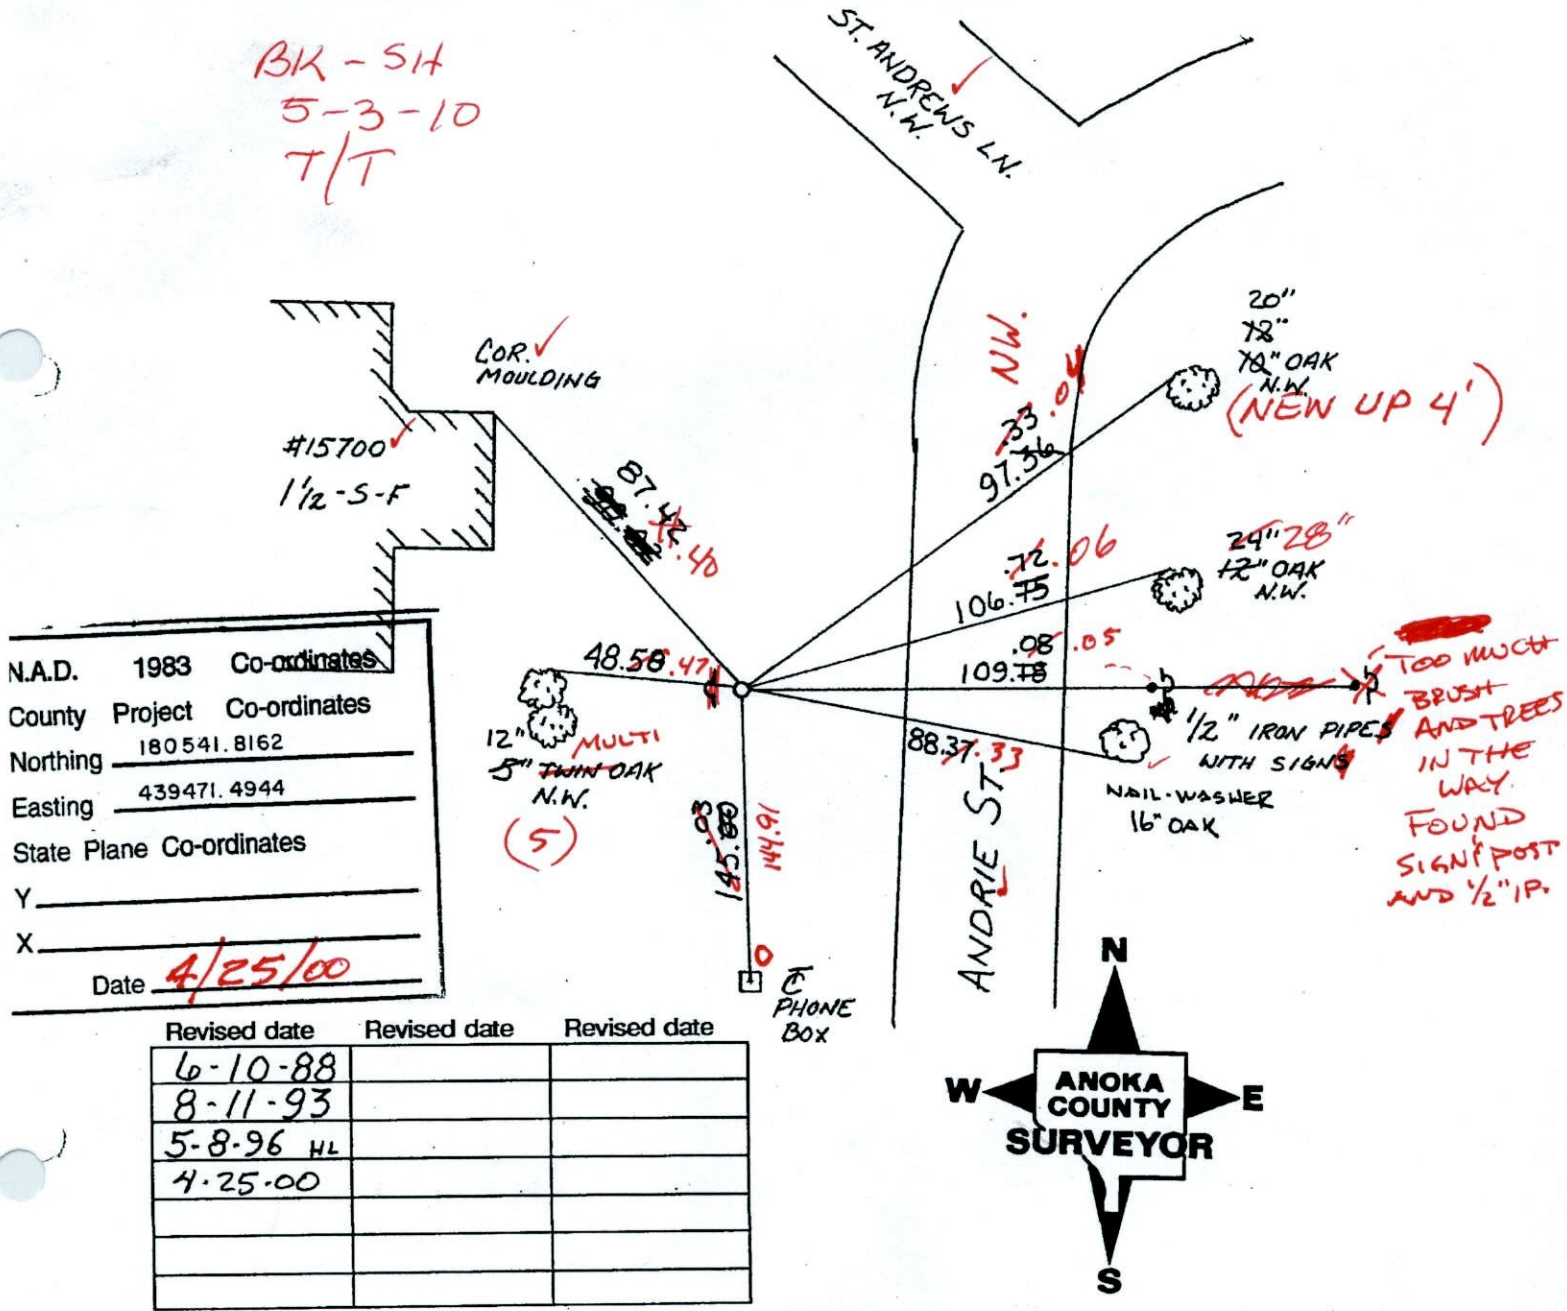 BK - SH
5-3-10
T/T
ST. ANDREWS LN.
N.W.
COR.
MOULDING
#15700
1 1/2-S-F
87.42
.40
NW.
.04
.33
97.36
20"
12"
10" OAK
N.W.
(NEW UP 4')
.72 .06
106.75
24" 28"
12" OAK
N.W.
48.50 .47
.08 .05
109.78
1/2" IRON PIPES
WITH SIGNS
TOO MUCH
BRUSH
AND TREES
IN THE
WAY.
FOUND
SIGN & POST
AND 1/2" IP.
12" MULTI
8" TWIN OAK
N.W.
(5)
88.37 .33
NAIL-WASHER
16" OAK
.03
145.00
144.91
ANDRIE ST.
℄
PHONE
BOX
N.A.D. 1983 Co-ordinates
County Project Co-ordinates
Northing 180541.8162
Easting 439471.4944
State Plane Co-ordinates
Y
X
Date 4/25/00
Revised date Revised date Revised date
6-10-88
8-11-93
5-8-96 HL
4-25-00
N
W E
ANOKA
COUNTY
SURVEYOR
S